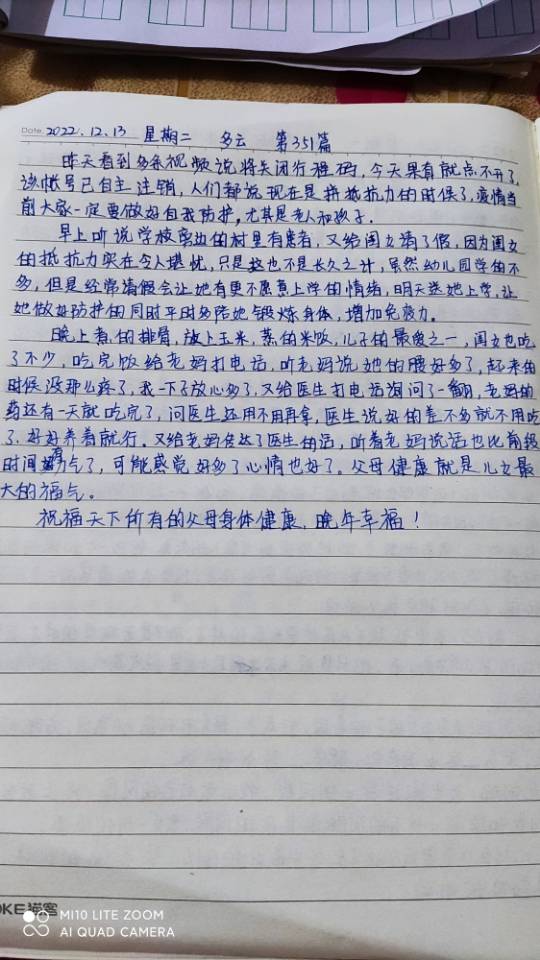 Date. 2022.12.13 星期二 多云 第351篇
昨天看到多条视频说将关闭行程码,今天果有就点不开了,
该帐号已自主注销,人们都说现在是拼抵抗力的时候了,疫情当
前大家一定要做好自我防护,尤其是老人和孩子.
早上听说学校旁边的村里有患者,又给闺女请了假,因为闺女
的抵抗力实在令人堪忧,只是这也不是长久之计,虽然幼儿园学的不
多,但是经常请假会让她有更不愿意上学的情绪,明天送她上学,让
她做好防护的同时平时多陪她锻炼身体,增加免疫力.
晚上煮的排骨,放上玉米,蒸的米饭,儿子的最爱之一,闺女也吃
了不少,吃完饭给老妈打电话,听老妈说她的腰好多了,起来的
时候没那么疼了,我一下子放心多了,又给医生打电话询问了一翻,老妈的
药还有一天就吃完了,问医生还用不用再拿,医生说好的差不多就不用吃
了,好好养着就行。又给老妈传达了医生的话,听着老妈说话也比前段
时间有力气了,可能感觉好多了心情也好了。父母健康就是儿女最
大的福气。
祝福天下所有的父母身体健康,晚年幸福!
MI10 LITE ZOOM
AI QUAD CAMERA